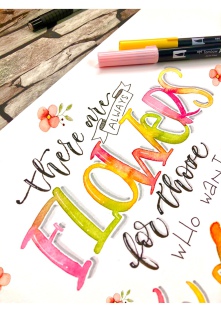 there are
ALWAYS
FLOWERS
for those
WHO WANT